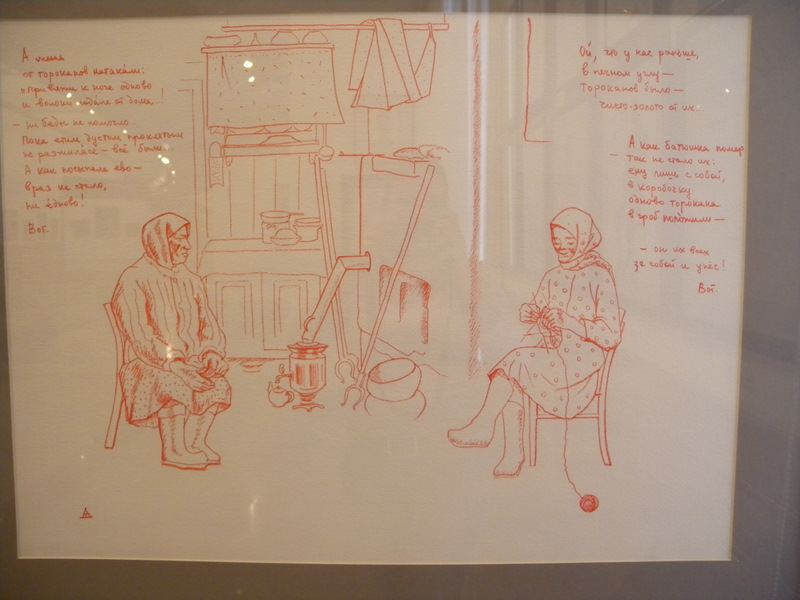 А меня
от тороканов натакали:
"Привяжи к ноге одново
и волоки подале от дома..!
– ни беды не помогло..
Пока етим дустом проклятым
не разжилась – всё были...
А как посыпала ево –
враз не стало,
ни едново!
Вот.
Ой, что у нас раньше,
в печном углу –
тороканов было –
чисто-золото от их...
А как батюшка помер
– так не стало их:
ему лишь с собой,
в коробочку
одново торокана
в гроб положили –
– он их всех
за собой и унёс!
Вот.